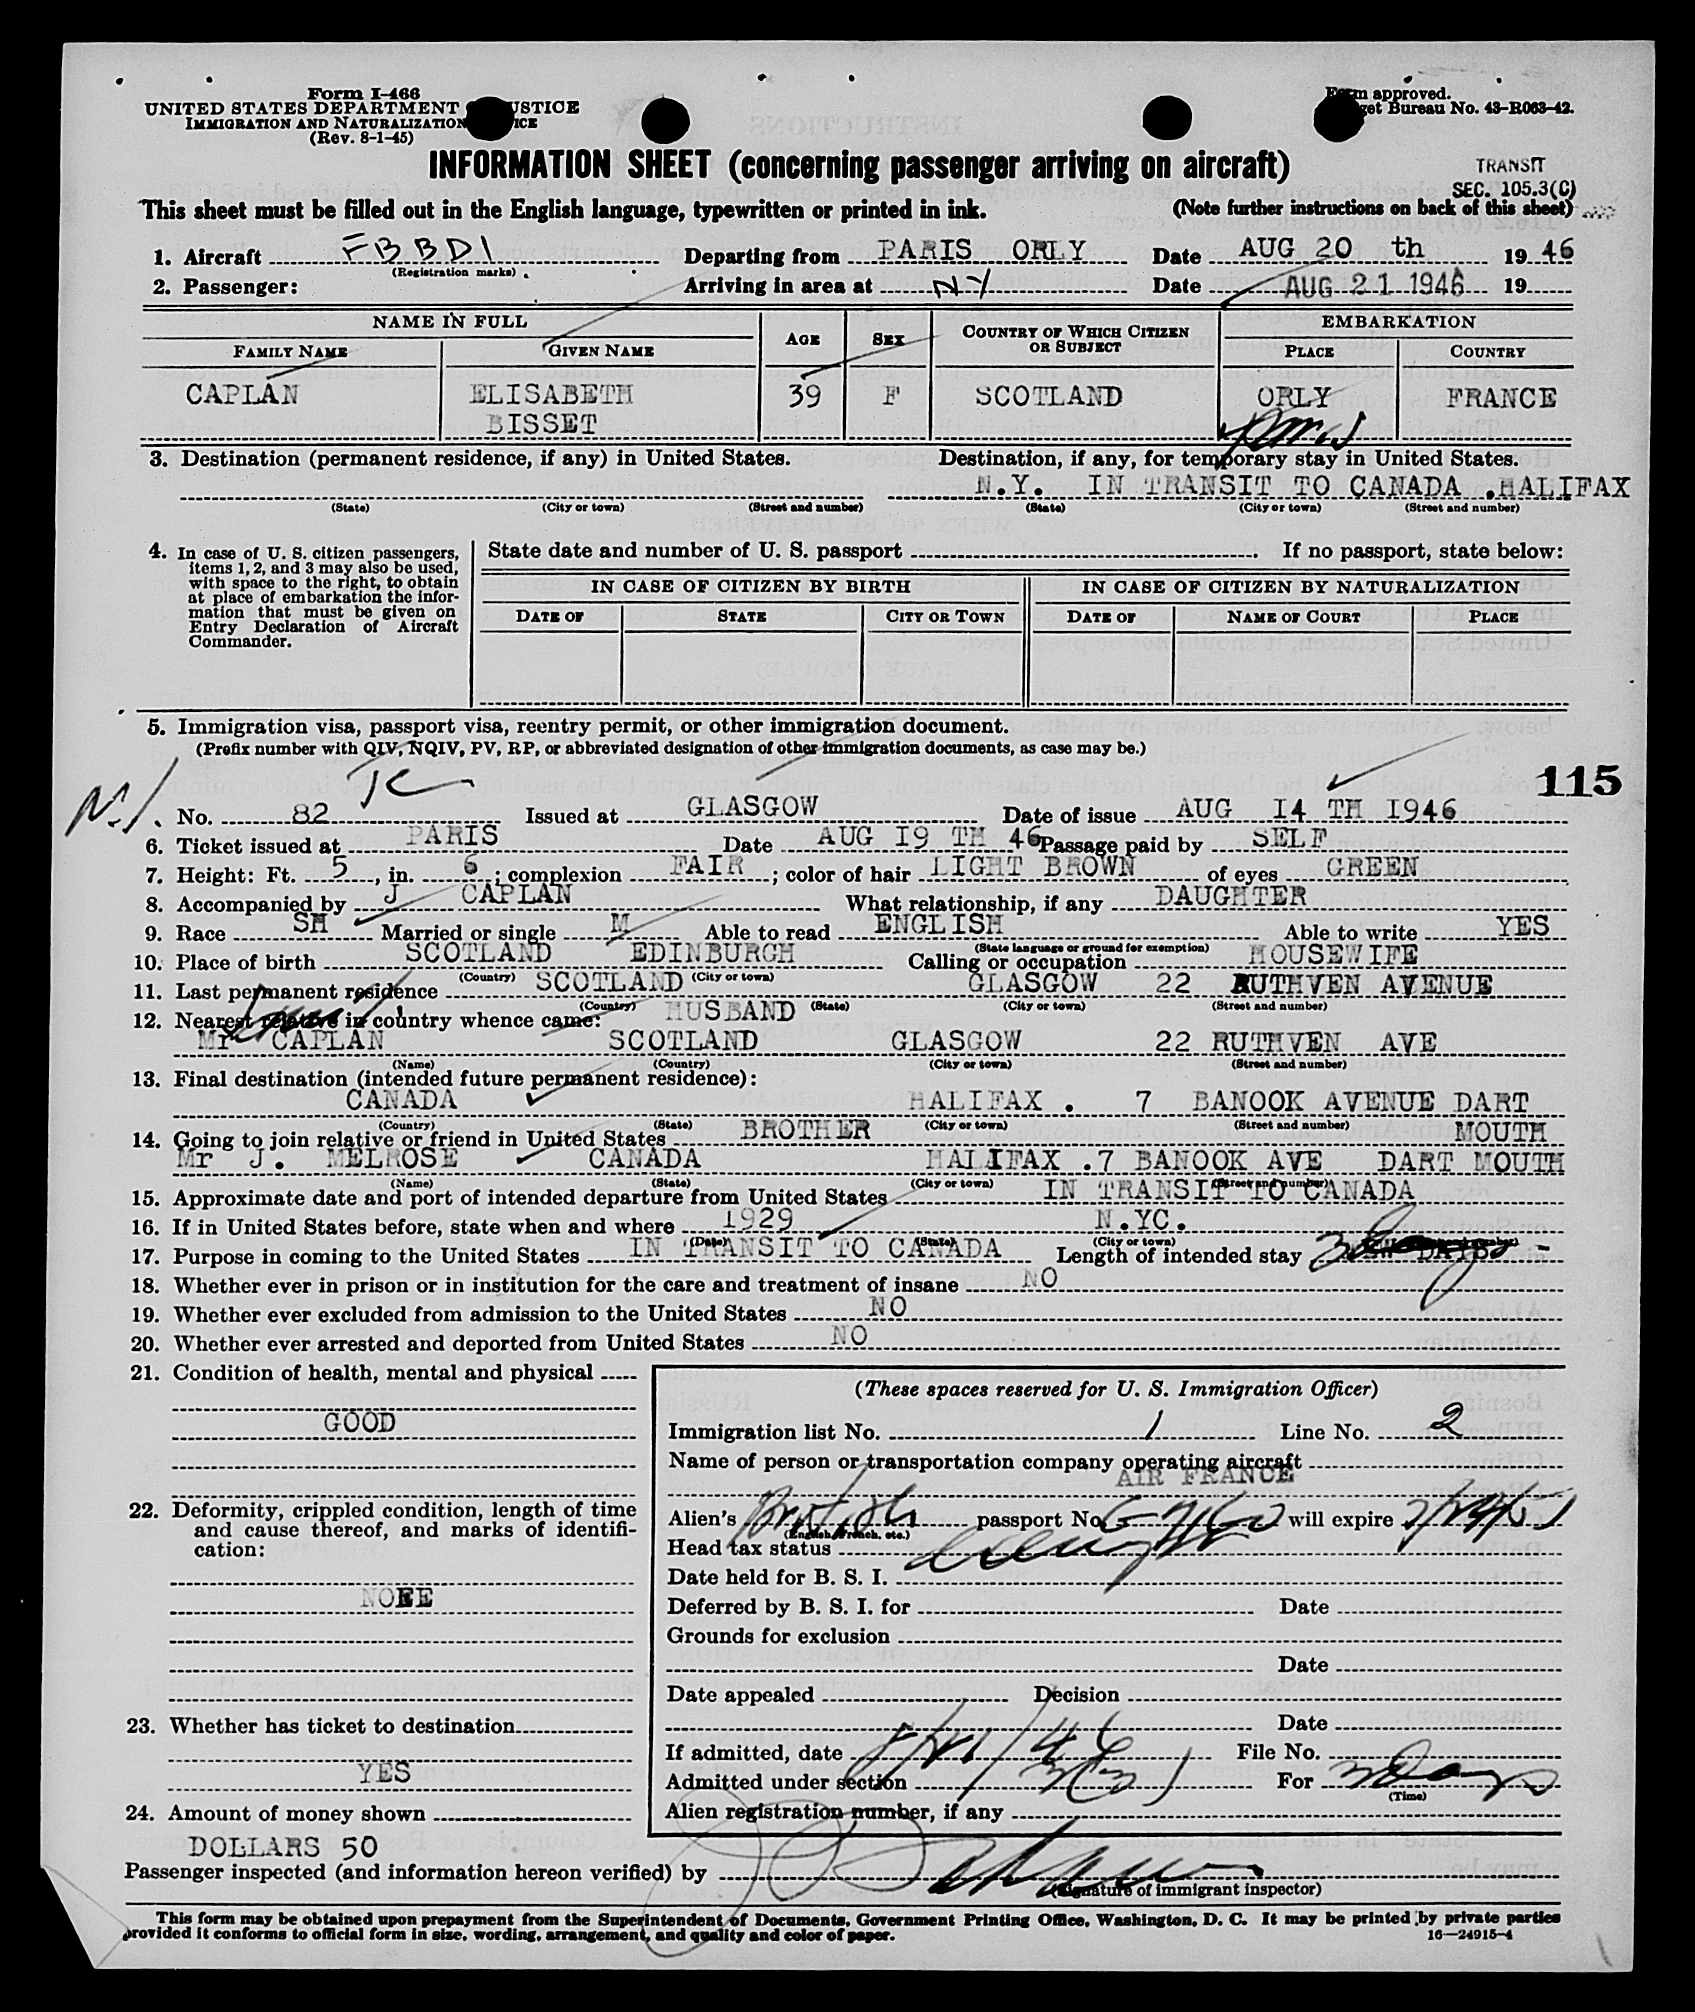 Form I-466
UNITED STATES DEPARTMENT JUSTICE
IMMIGRATION AND NATURALIZATION
(Rev. 8-1-45)
Form approved.
Budget Bureau No. 43-R063-42.
INFORMATION SHEET (concerning passenger arriving on aircraft)
TRANSIT
SEC. 105.3(C)
This sheet must be filled out in the English language, typewritten or printed in ink.
(Note further instructions on back of this sheet)
1. Aircraft FBBDI Departing from PARIS ORLY Date AUG 20 th 19 46
(Registration marks)
2. Passenger: Arriving in area at NY Date AUG 21 1946 19
NAME IN FULL AGE SEX COUNTRY OF WHICH CITIZEN OR SUBJECT EMBARKATION
FAMILY NAME GIVEN NAME PLACE COUNTRY
CAPLAN ELISABETH 39 F SCOTLAND ORLY FRANCE
BISSET Paris
3. Destination (permanent residence, if any) in United States. Destination, if any, for temporary stay in United States.
N.Y. IN TRANSIT TO CANADA .HALIFAX
(State) (City or town) (Street and number) (State) (City or town) (Street and number)
4. In case of U. S. citizen passengers, items 1, 2, and 3 may also be used, with space to the right, to obtain at place of embarkation the information that must be given on Entry Declaration of Aircraft Commander.
State date and number of U. S. passport If no passport, state below:
IN CASE OF CITIZEN BY BIRTH IN CASE OF CITIZEN BY NATURALIZATION
DATE OF STATE CITY OR TOWN DATE OF NAME OF COURT PLACE
5. Immigration visa, passport visa, reentry permit, or other immigration document.
(Prefix number with QIV, NQIV, PV, RP, or abbreviated designation of other immigration documents, as case may be.)
TC
115
No. 82 Issued at GLASGOW Date of issue AUG 14 TH 1946
6. Ticket issued at PARIS Date AUG 19 TH 46 Passage paid by SELF
7. Height: Ft. 5, in. 6; complexion FAIR; color of hair LIGHT BROWN of eyes GREEN
8. Accompanied by J CAPLAN What relationship, if any DAUGHTER
9. Race SH Married or single M Able to read ENGLISH Able to write YES
(State language or ground for exemption)
10. Place of birth SCOTLAND EDINBURGH Calling or occupation HOUSEWIFE
(Country) (City or town)
11. Last permanent residence SCOTLAND GLASGOW 22 RUTHVEN AVENUE
(Country) (State) (City or town) (Street and number)
12. Nearest relative in country whence came: HUSBAND
Mr CAPLAN SCOTLAND GLASGOW 22 RUTHVEN AVE
(Name) (Country) (City or town) (Street and number)
13. Final destination (intended future permanent residence):
CANADA HALIFAX . 7 BANOOK AVENUE DART
(Country) (State) (City or town) (Street and number)
MOUTH
14. Going to join relative or friend in United States BROTHER
Mr J. MELROSE CANADA HALIFAX .7 BANOOK AVE DART MOUTH
(Name) (State) (City or town) (Street and number)
15. Approximate date and port of intended departure from United States IN TRANSIT TO CANADA
16. If in United States before, state when and where 1929 N.YC.
(Date) (State) (City or town)
17. Purpose in coming to the United States IN TRANSIT TO CANADA Length of intended stay 3 Days
18. Whether ever in prison or in institution for the care and treatment of insane NO
19. Whether ever excluded from admission to the United States NO
20. Whether ever arrested and deported from United States NO
21. Condition of health, mental and physical
GOOD
22. Deformity, crippled condition, length of time and cause thereof, and marks of identification:
NONE
23. Whether has ticket to destination
YES
24. Amount of money shown
DOLLARS 50
(These spaces reserved for U. S. Immigration Officer)
Immigration list No. 1 Line No. 2
Name of person or transportation company operating aircraft
AIR FRANCE
Alien's British passport No. will expire
(English, French, etc.)
Head tax status
Date held for B. S. I.
Deferred by B. S. I. for Date
Grounds for exclusion
Date
Date appealed Decision
Date
If admitted, date 8/21/46 File No.
Admitted under section 3(3) For 3 Days
(Time)
Alien registration number, if any
Passenger inspected (and information hereon verified) by
(Signature of immigrant inspector)
This form may be obtained upon prepayment from the Superintendent of Documents, Government Printing Office, Washington, D. C. It may be printed by private parties
provided it conforms to official form in size, wording, arrangement, and quality and color of paper.
16—24915-4